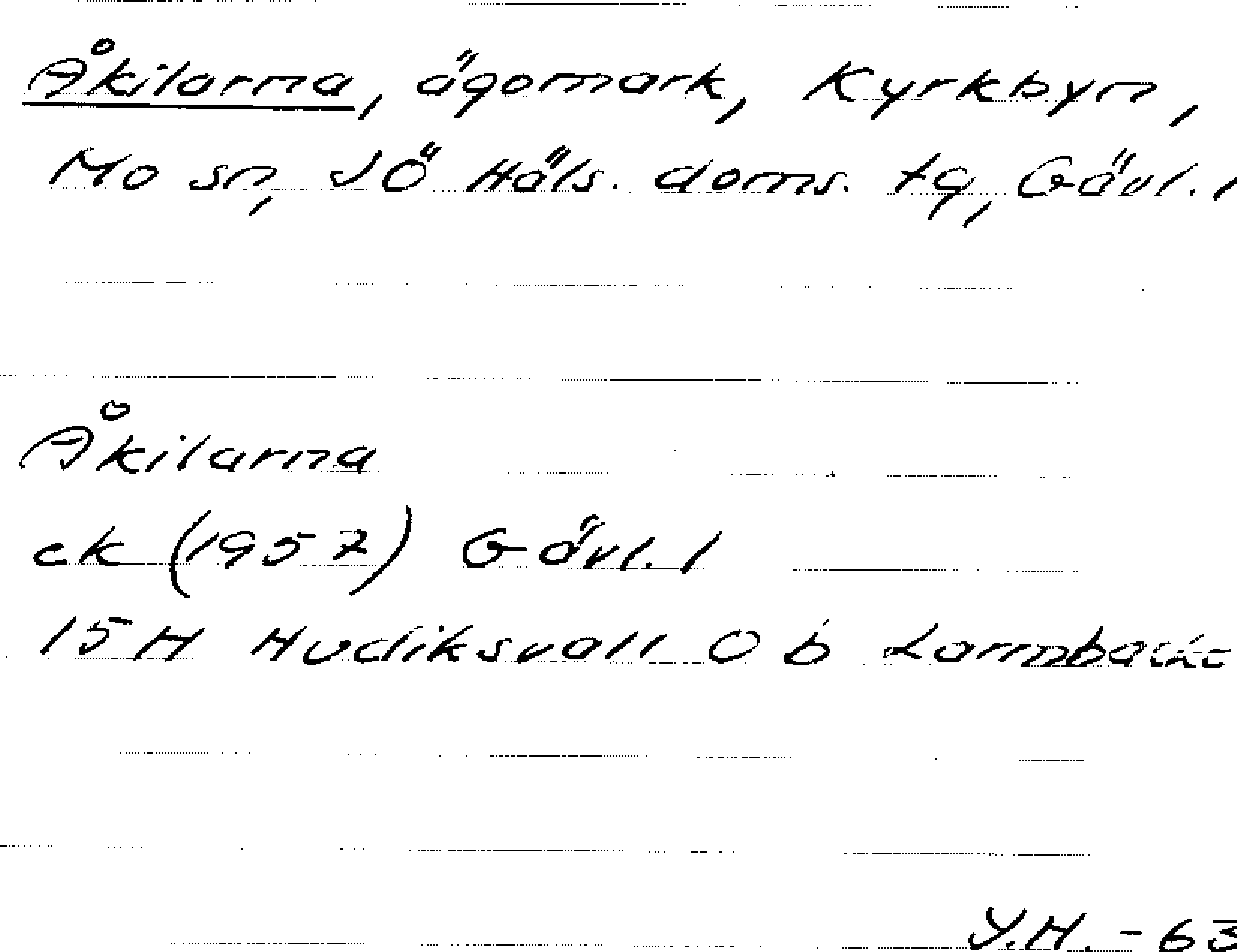 Åkilarna, ägomark, Kyrkbyn,
Mo sn, SÖ Häls. doms. tg, Gävl. l
Åkilarna
ek (1957) Gävl. l
15 H Hudiksvall 0 b
Y.H. - 63